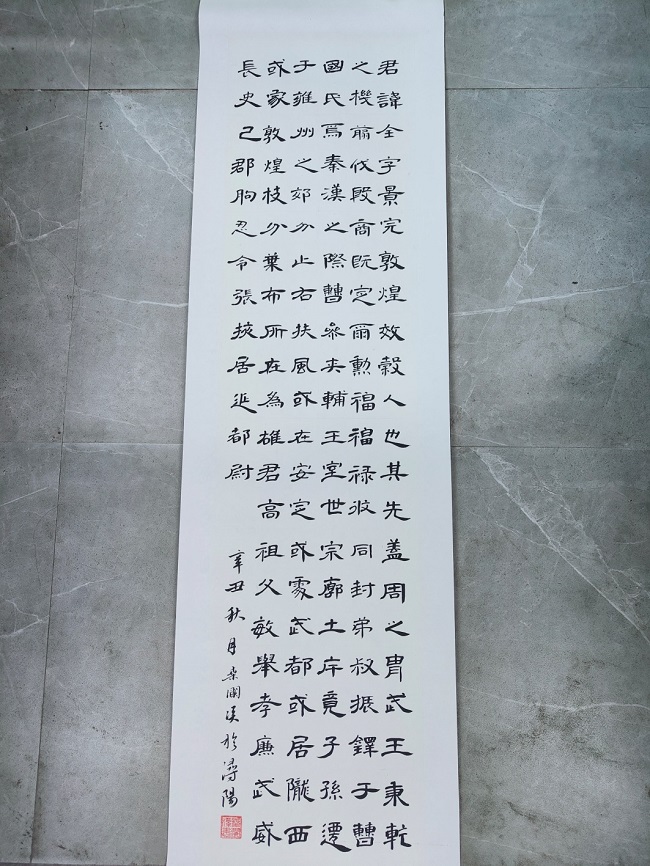 君諱全字景完敦煌效穀人也其先蓋周之胄武王秉乾
之機翦伐殷商既定爾勳福福祿攸同封弟叔振鐸于曹
國氏焉秦漢之際曹參夾輔王室世宗廓土斥竟子孫遷
于雍州之郊分止右扶風或在安定或處武都或居隴西
或家敦煌枝分葉布所在為雄君高祖父敏舉孝廉武威
長史巳郡朐忍令張掖居延都尉
辛丑秋月於潯陽